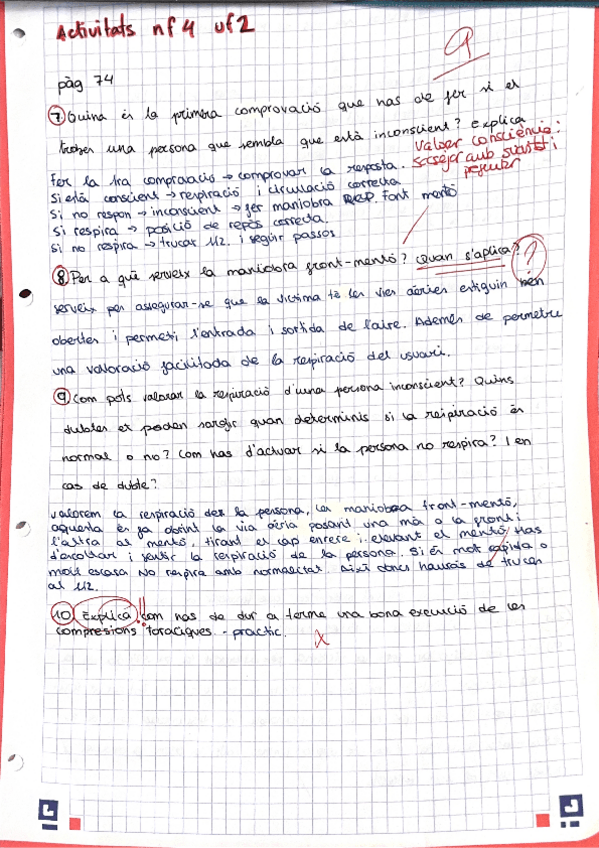 Activitats nf4 uf2
9
pàg 74
7 Quina és la primera comprovació que has de fer si et
trobes una persona que sembla que està inconscient? Explica
Valoer consciència:
Fer la 1ra comprovació → comprovar la resposta.
Si està conscient → respiració i circulació correcta
Si no respon → inconscient → fer maniobra RCP. Font mentó
Si respira → posició de repòs correcta.
Si no respira → trucar 112. i seguir passos
8 Per a què serveix la maniobra front-mentó? Quan s'aplica? ?
serveix per assegurar-se que la víctima té les vies aèries estiguin ben
obertes i permeti l'entrada i sortida de l'aire. Ademés de permetre
una valoració facilitada de la respiració del usuari.
9 Com pots valorar la respiració d'una persona inconscient? Quins
dubtes et poden sorgir quan determinis si la respiració és
normal o no? Com has d'actuar si la persona no respira? I en
cas de dubte?
valorem la respiració de la persona, la maniobra front-mentó,
aquesta es fa obrint la via aèria posant una mà a la front i
l'altra al mentó, tirant el cap enrere i elevant el mentó. Has
d'escoltar i sentir la respiració de la persona. Si és molt ràpida o
molt escasa No respira amb normalitat. Així doncs hauràs de trucar
al 112.
10 Explica !! com has de dur a terme una bona execució de les
compresions toraciques. - practic. X